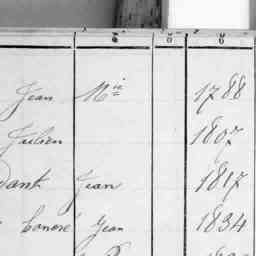 Jean Mie 1788
Julien 1807
Jean 1817
Honoré Jean 1834